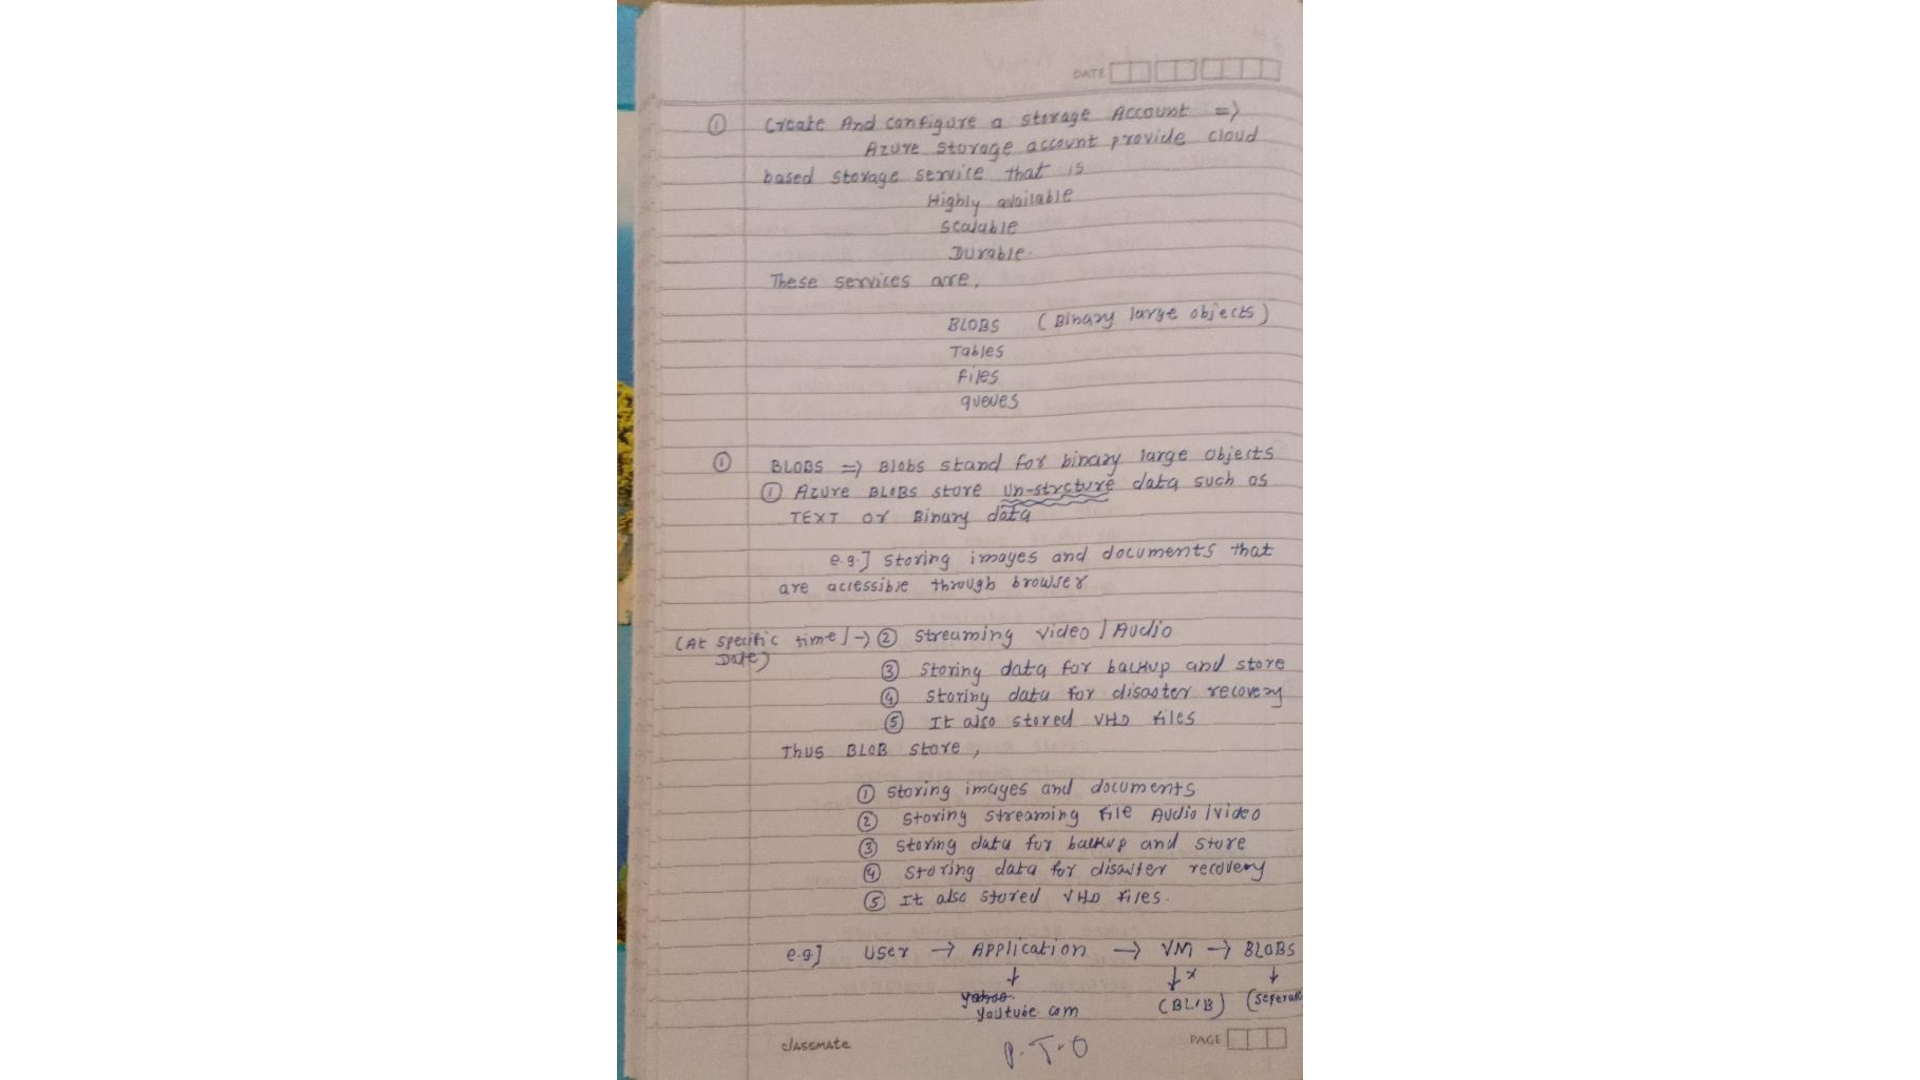 DATE
① Create And configure a storage Account =>
Azure storage account provide cloud
based storage service that is
Highly available
scalable
Durable.
These services are,
BLOBS (Binary large objects)
Tables
Files
queues
① BLOBS => Blobs stand for binary large objects
① Azure BLOBS store un-strcture data such as
TEXT or Binary data
e.g.] storing images and documents that
are accessible through browser
(At specific time/ -> ② streaming video / Audio
Date)
③ storing data for backup and store
④ storing data for disaster recovery
⑤ It also stored VHD files
Thus BLOB store,
① storing images and documents
② storing streaming file Audio/video
③ storing data for backup and store
④ storing data for disaster recovery
⑤ It also stored VHD files.
e.g] User -> Application -> VM -> BLOBS
↓ ↓x ↓
yahoo.
youtube.com (BLOB) (seperate
classmate PAGE
P.T.O